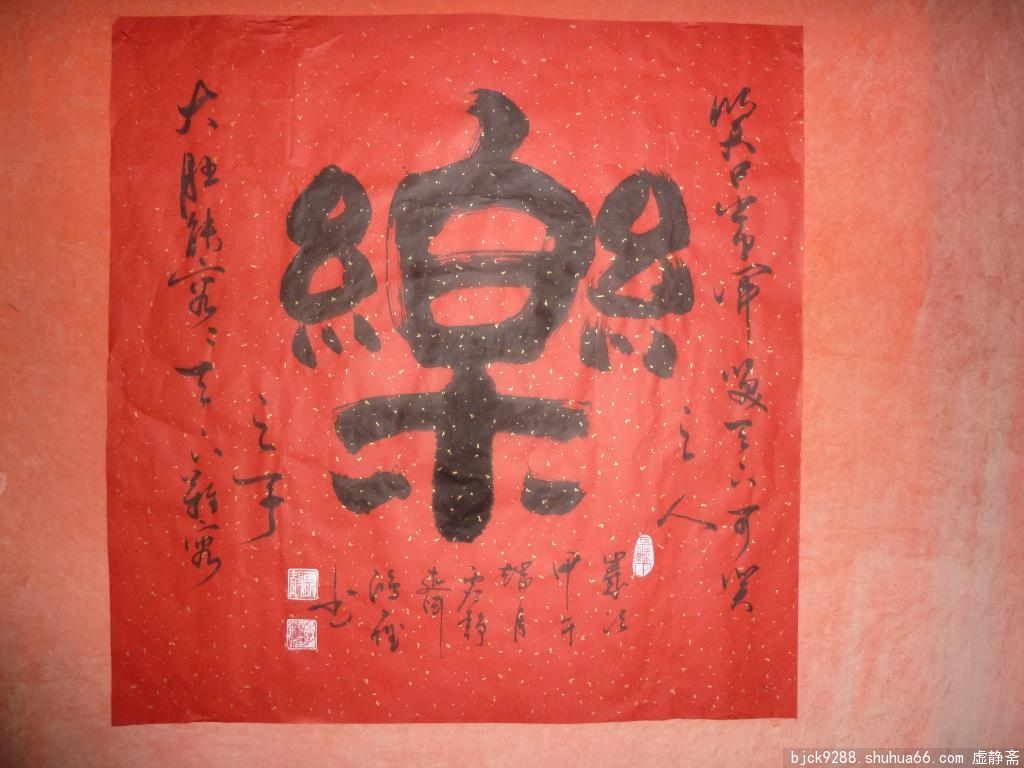 笑口常開笑天下可笑
之人
樂
大肚能容〻天下難容
之事
歲次
甲午
端月
虚静
斋
鴻
书
bjck9288.shuhua66.com 虚静斋